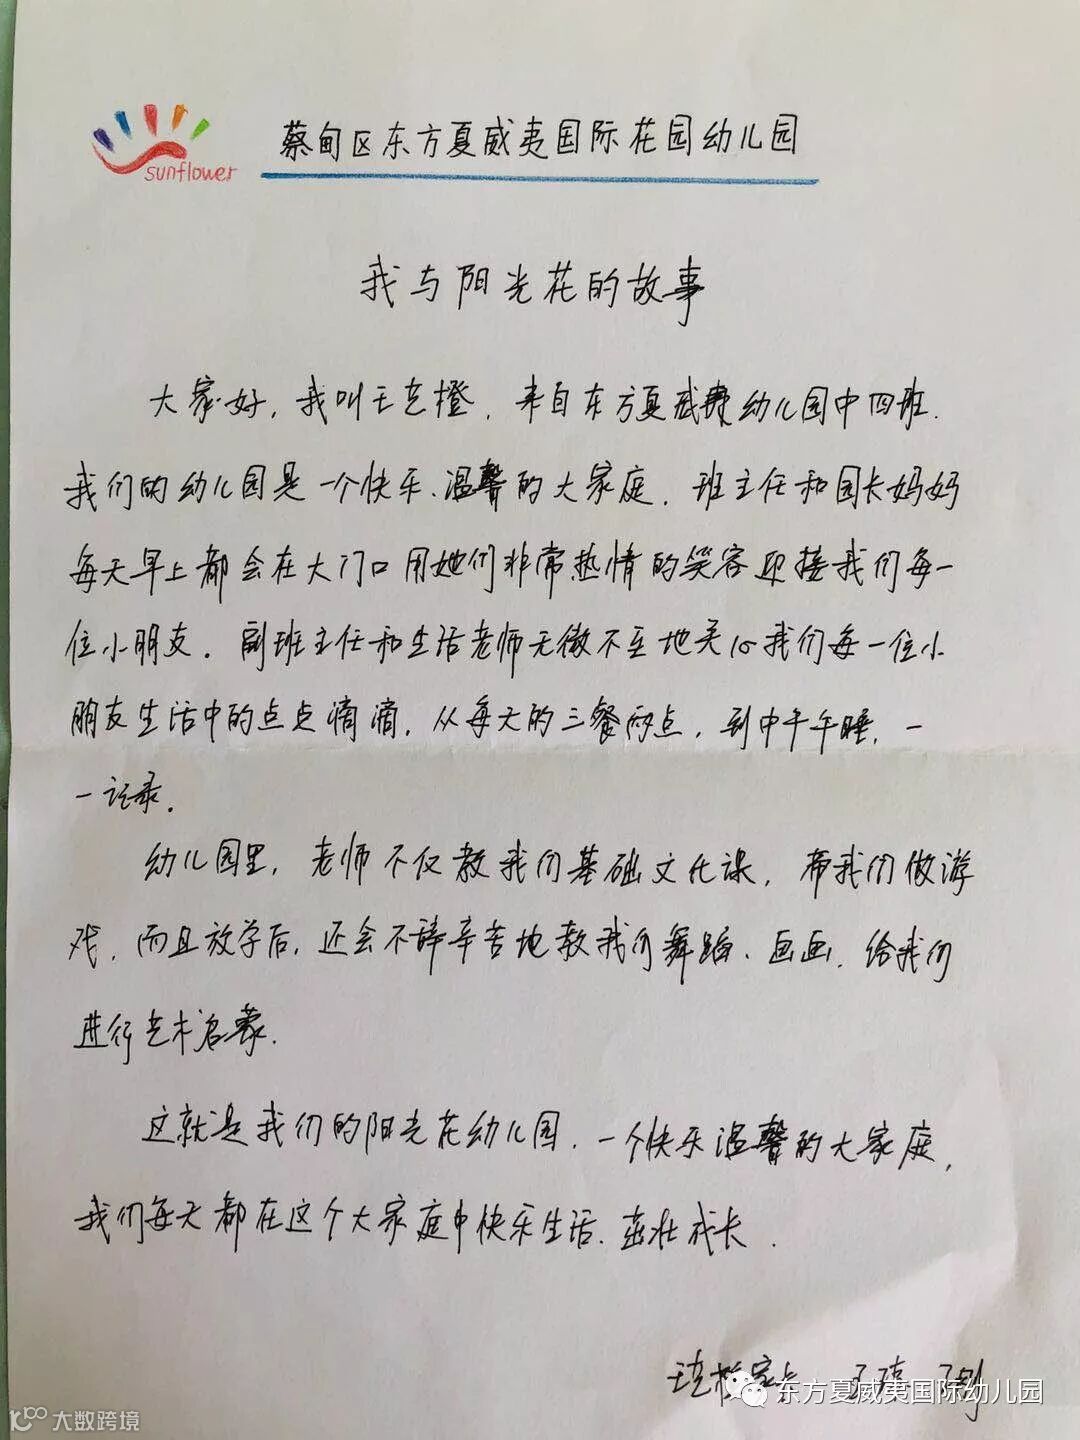 sunflower
蔡甸区东方夏威夷国际花园幼儿园
我与阳光花的故事
大家好，我叫王艺橙，来自东方夏威夷幼儿园中四班.
我们的幼儿园是一个快乐、温馨的大家庭．班主任和园长妈妈
每天早上都会在大门口用她们非常热情的笑容迎接我们每一
位小朋友．副班主任和生活老师无微不至地关心我们每一位小
朋友生活中的点点滴滴．从每天的三餐两点，到中午午睡，一
一记录．
幼儿园里，老师不仅教我们基础文化课，带我们做游
戏，而且放学后，还会不辞辛苦地教我们舞蹈、画画，给我们
进行艺术启蒙．
这就是我们的阳光花幼儿园，一个快乐温馨的大家庭，
我们每天都在这个大家庭中快乐生活、茁壮成长．
家长
东方夏威夷国际幼儿园
大数跨境